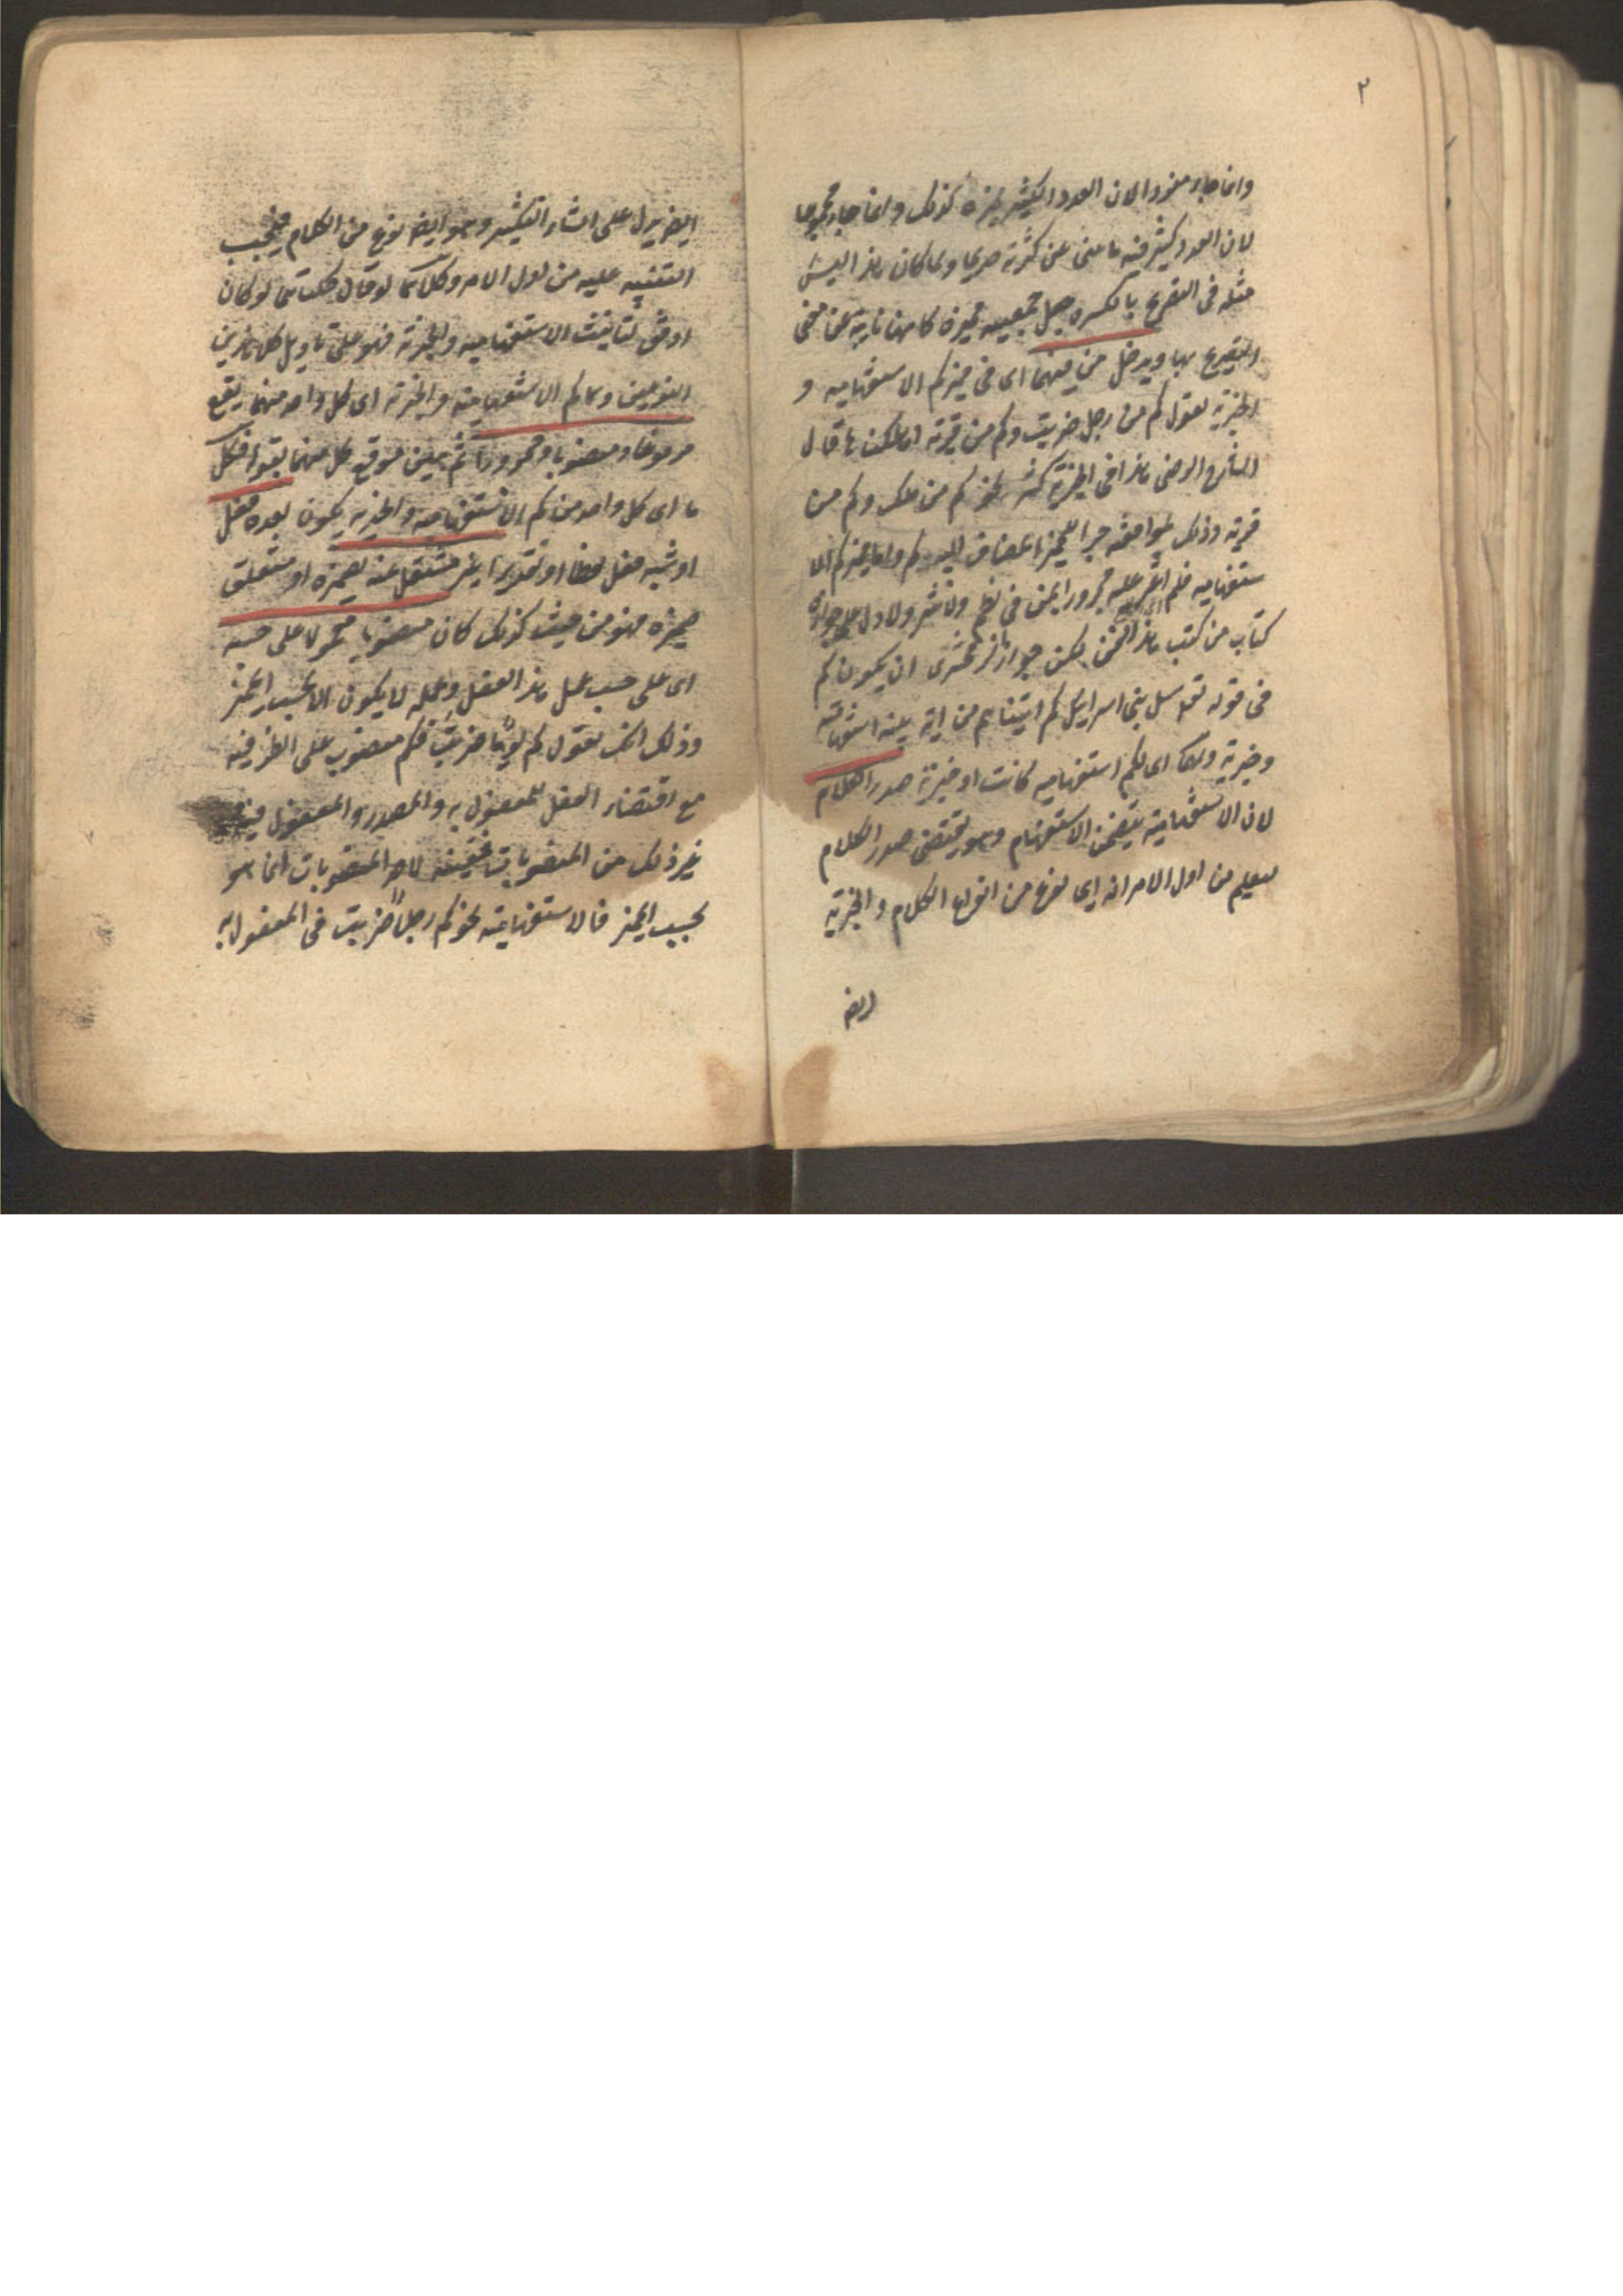 ٢
وانما جاء مفردا لان العدد الكثير مميزه كذلك وانما جاء مجموعا
لان العدد الكثير فيه ما ينبئ عن كثرته صريحا ولما كان هذا ليس
مثله في التصريح بالكثرة جعل جمعية مميزه كانها نائبة عن معنى
التصريح بها ويدخل من فيهما اى في مميزكم الاستفهامية و
الخبرية تقول كم من رجل ضربت وكم من قرية اهلكناها قال
الشارح الرضى هذا في الخبرية كثير نحو كم من ملك وكم من
قرية وذلك لموافقته جرا للمميز المضاف اليه كم واما مميز كم الا
ستفهامية فلم اعثر عليه مجرورا بمن في نظم ولا نثر ولا دل على جوازه
كتاب من كتب هذا الفن لكن جوز الزمخشرى ان يكون كم
في قوله تع سل بنى اسرائيل كم اتيناهم من اية بينة استفهامية
وخبرية ولها اى لكم استفهامية كانت او خبرية صدر الكلام
لان الاستفهامية يتضمن الاستفهام وهو يقتضى صدر الكلام
ليعلم من اول الامر انه اى نوع من انواع الكلام والخبرية
ايض
ايض يدل على انشاء التكثير وهو ايض نوع من الكلام فيجب
التنبيه عليه من اول الامر وكلاكما لو قال كلتاهما لو كان
اوفق لتانيث الاستفهامية والخبرية فهو على تاويل كلا هذين
النوعين وكلاكم الاستفهامية والخبرية اى كل واحد منهما يقع
مرفوعا ومنصوبا ومجرورا ثم بين موقع كل منهما بقوله فكل
ما اى كل واحد من كم الاستفهامية والخبرية يكون بعده فعل
او شبه فعل لفظا او تقديرا غير مشتغل عنه بضميره او متعلق
ضميره فهو من حيث كذلك كان منصوبا معمولا على حسبه
اى على حسب عمل هذا الفعل وعمله لا يكون الا بحسب المميز
وذلك انك تقول كم يوما ضربت فكم منصوب على الظرفية
مع اقتضاء الفعل للمفعول به والمصدر والمفعول فيه
غير ذلك من المنصوبات فتعينه لاحد المنصوبات انما هو
بحسب المميز فالاستفهامية نحو كم رجلا ضربت في المفعول به